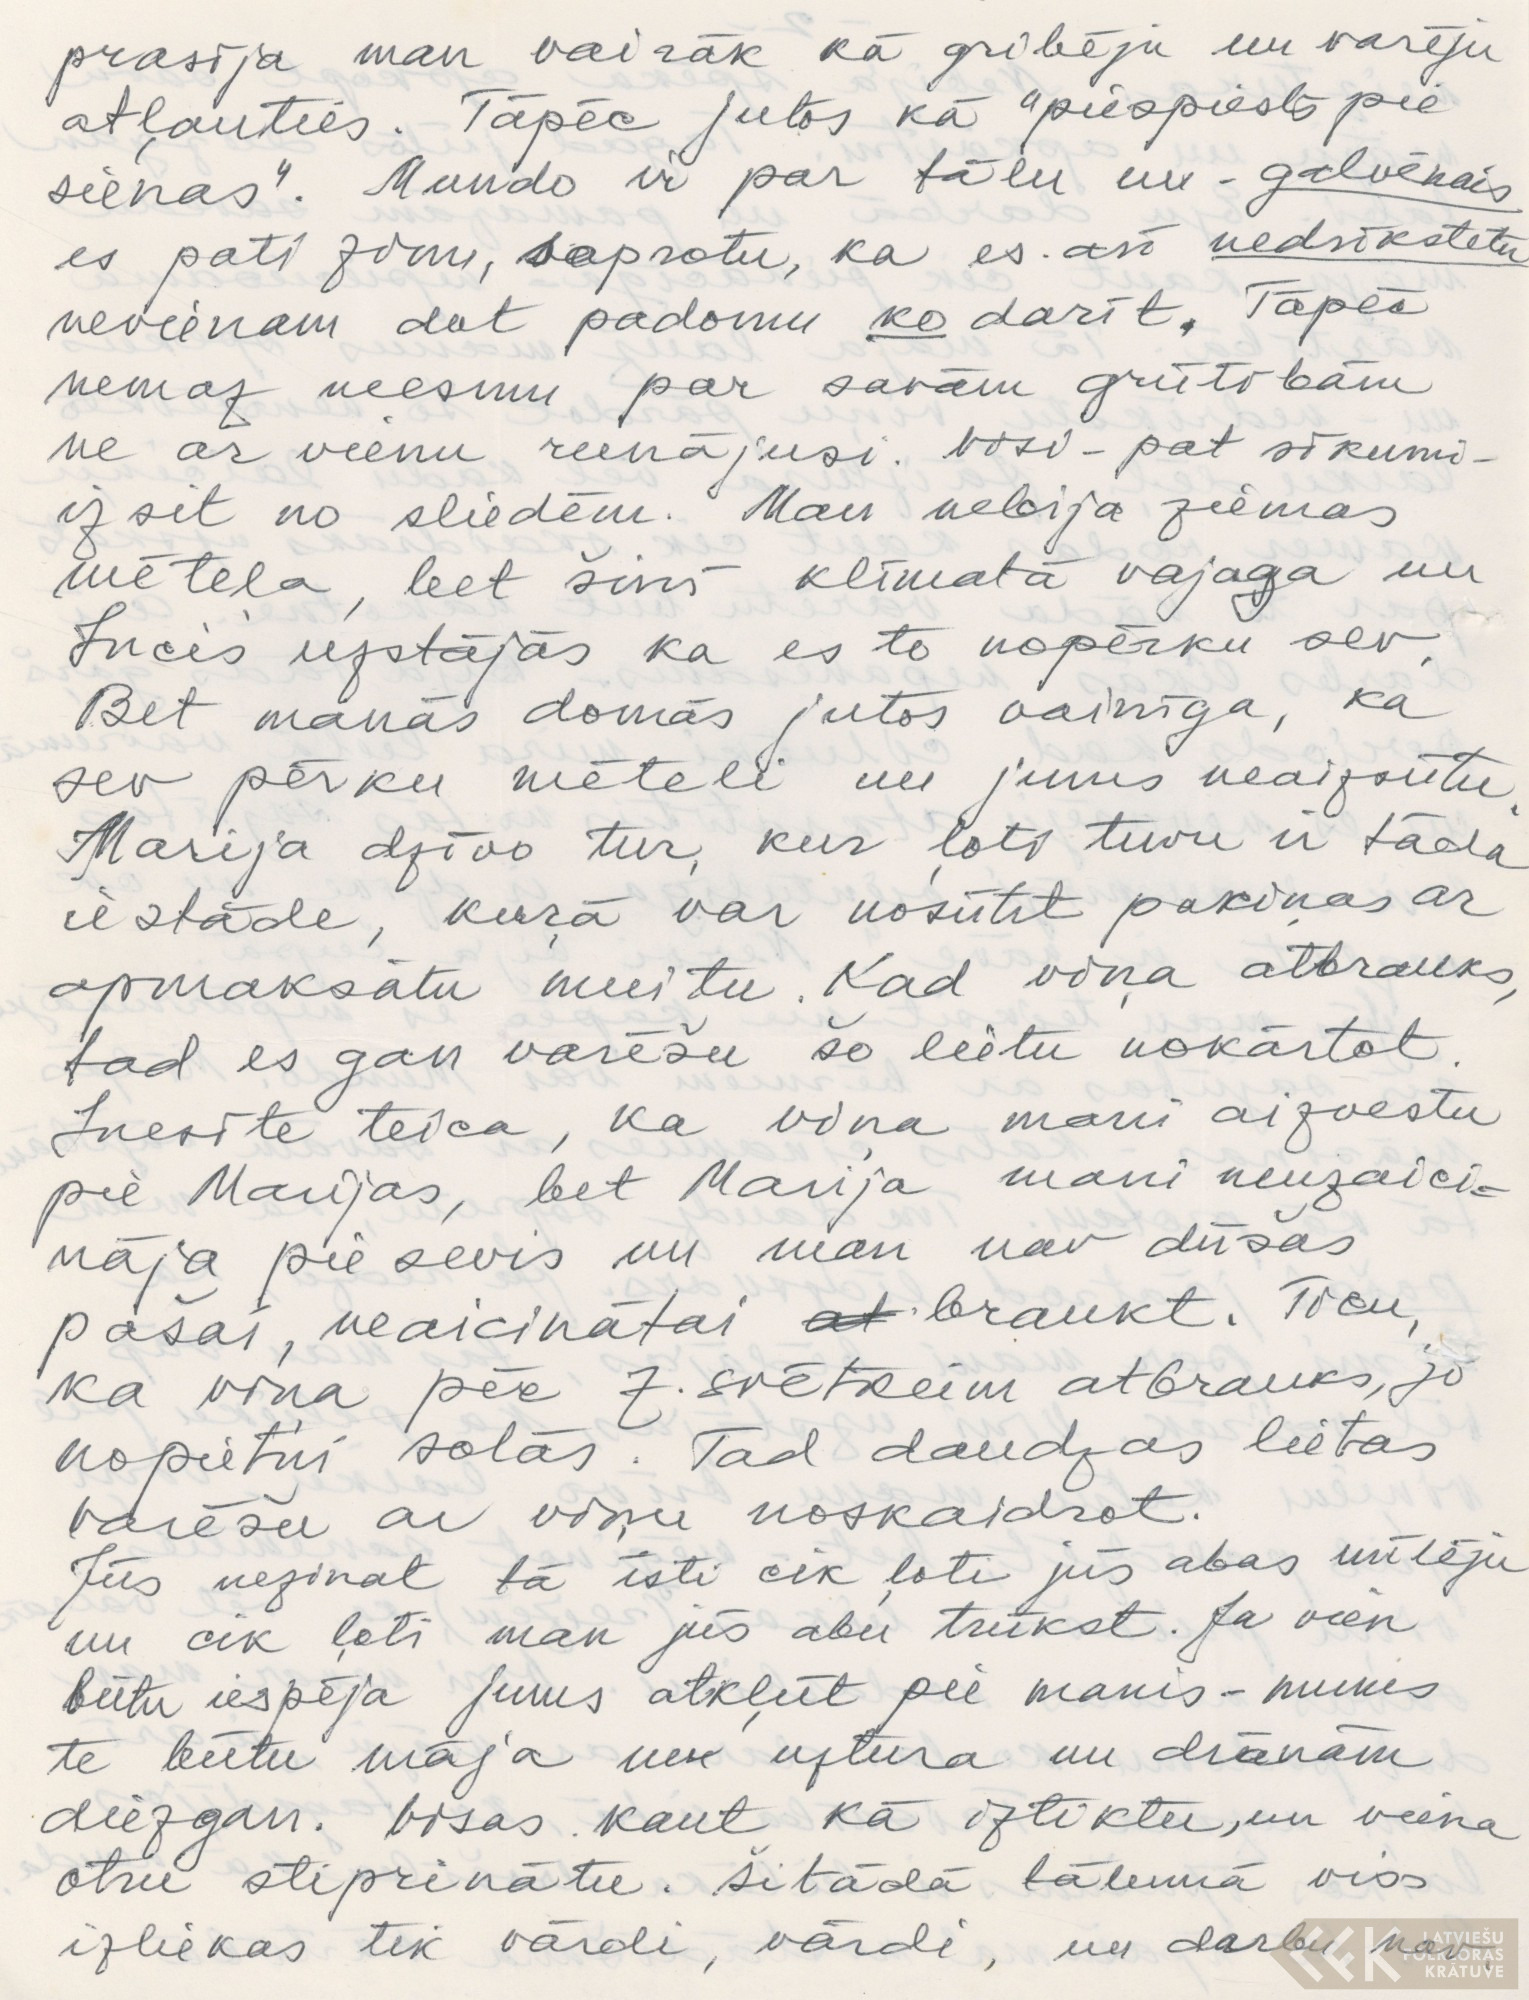 prasīja man vairāk kā gribēju un varēju
atļauties. Tāpēc jutos kā "piespiests pie
sienas". Mundo ir par tālu un - galvēnais
es pati zinu, saprotu, ka es arī nedrīkstētu
nevienam dot padomu ko darīt. Tāpēc
nemaz neesmu par savām grūtībām
ne ar vienu runājusi. Visi - pat sīkumi -
izsit no sliedēm. Man nebija ziemas
mēteļa, bet šinī klīmatā vajaga un
Incis uzstājās ka es to nopērku sev.
Bet manās domās jutos vainīga, ka
sev pērku mēteli un jums neaizsūtu.
Marija dzīvo tur, kur ļoti tuvu ir tāda
iestāde, kuŗā var nosūtīt paciņas ar
apmaksātu muitu. Kad viņa atbrauks,
tad es gan varēšu šo lietu nokārtot.
Inesīte teica, ka viņa mani aizvestu
pie Marijas, bet Marija mani neuzaici-
nāja pie sevis un man nav dūšas
pašai, neaicinātai at braukt. Ticu,
ka viņa pēc Z. svētkiem atbrauks, jo
nopietni solās. Tad daudzas lietas
varēšu ar viņu noskaidrot.
Jūs nezinat tā īsti cik ļoti jūs abas mīlēju
un cik ļoti man jūs abu trūkst. Ja vien
būtu iespēja jums atkļūt pie manis - mums
te būtu māja un uztura un drānām
diezgan. Visas kaut kā iztiktu, un viena
otru stiprinātu. Šitādā tālumā viss
izliekas tik vārdi, vārdi, un darbu nav.
LATVIEŠU
FOLKLORAS
KRĀTUVE